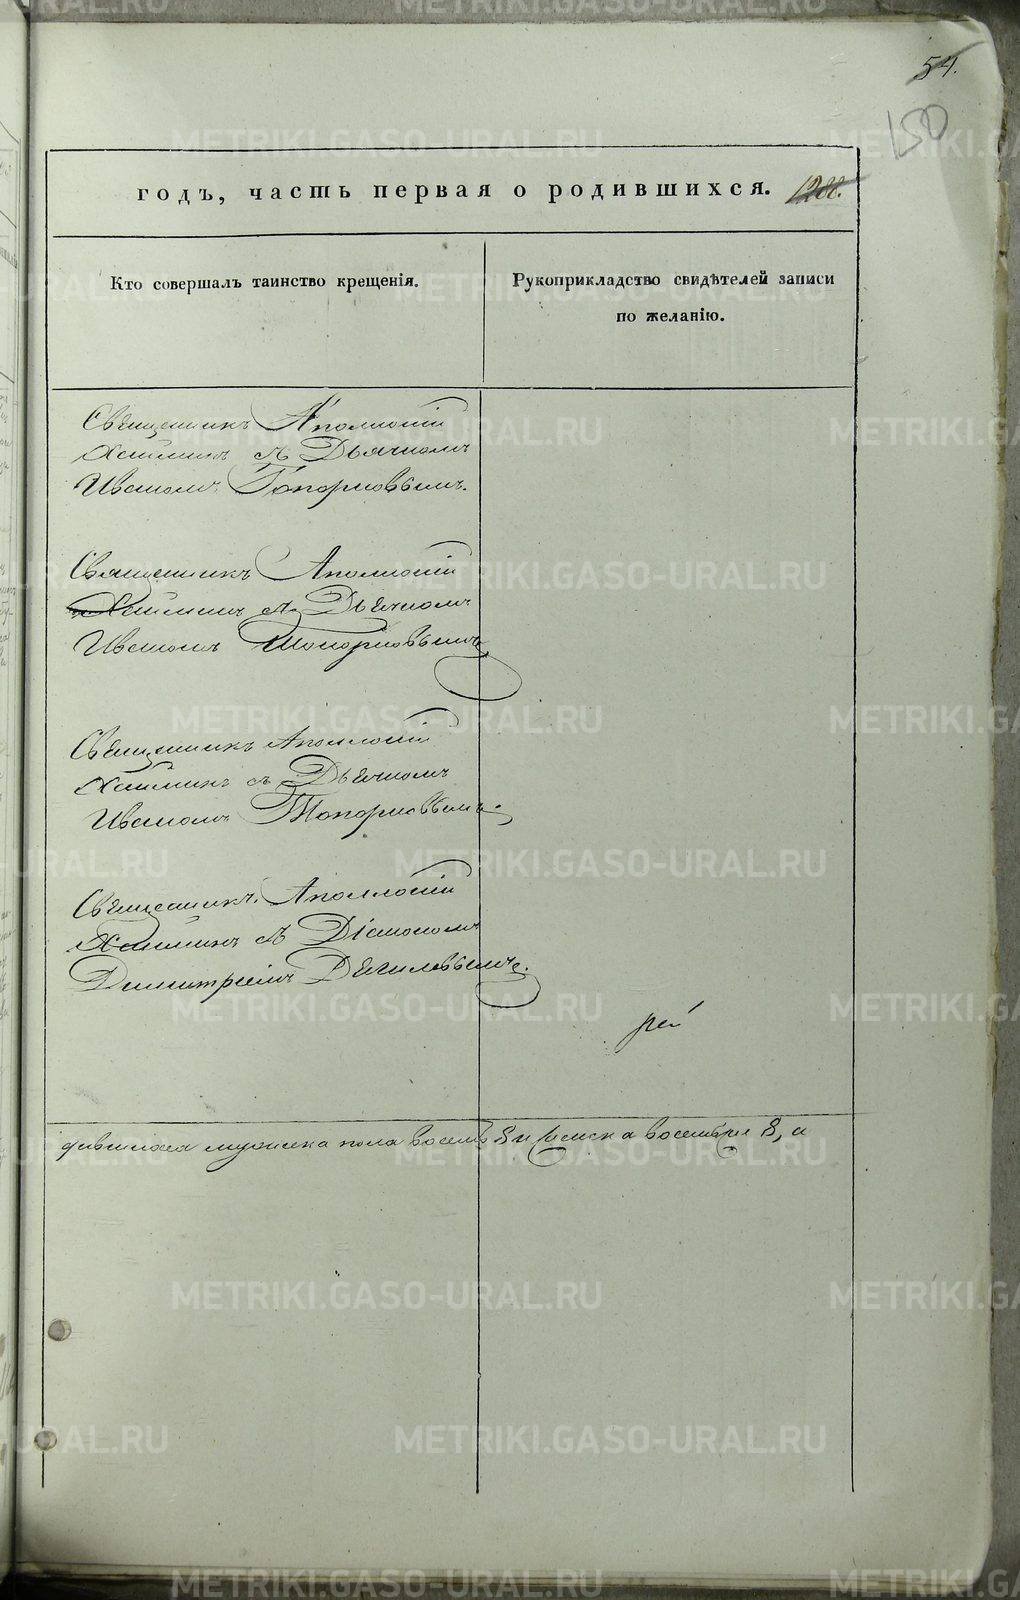 54.
150
годъ, часть первая о родившихся. 1288.
Кто совершалъ таинство крещенія.
Рукоприкладство свидѣтелей записи
по желанію.
Священникъ Аполлосій
Хаймин съ Дьячкомъ
Иваномъ Топорковымъ.
Священникъ Аполлосій
Хаймин съ Дьячкомъ
Иваномъ Топорковымъ
Священникъ Аполлосій
Хаймин съ Дьячкомъ
Иваномъ Топорковымъ.
Священникъ Аполлосій
Хаймин съ Діакономъ
Димитріемъ
мужеска пола восемь 8 и женска 8, а
METRIKI.GASO-URAL.RU